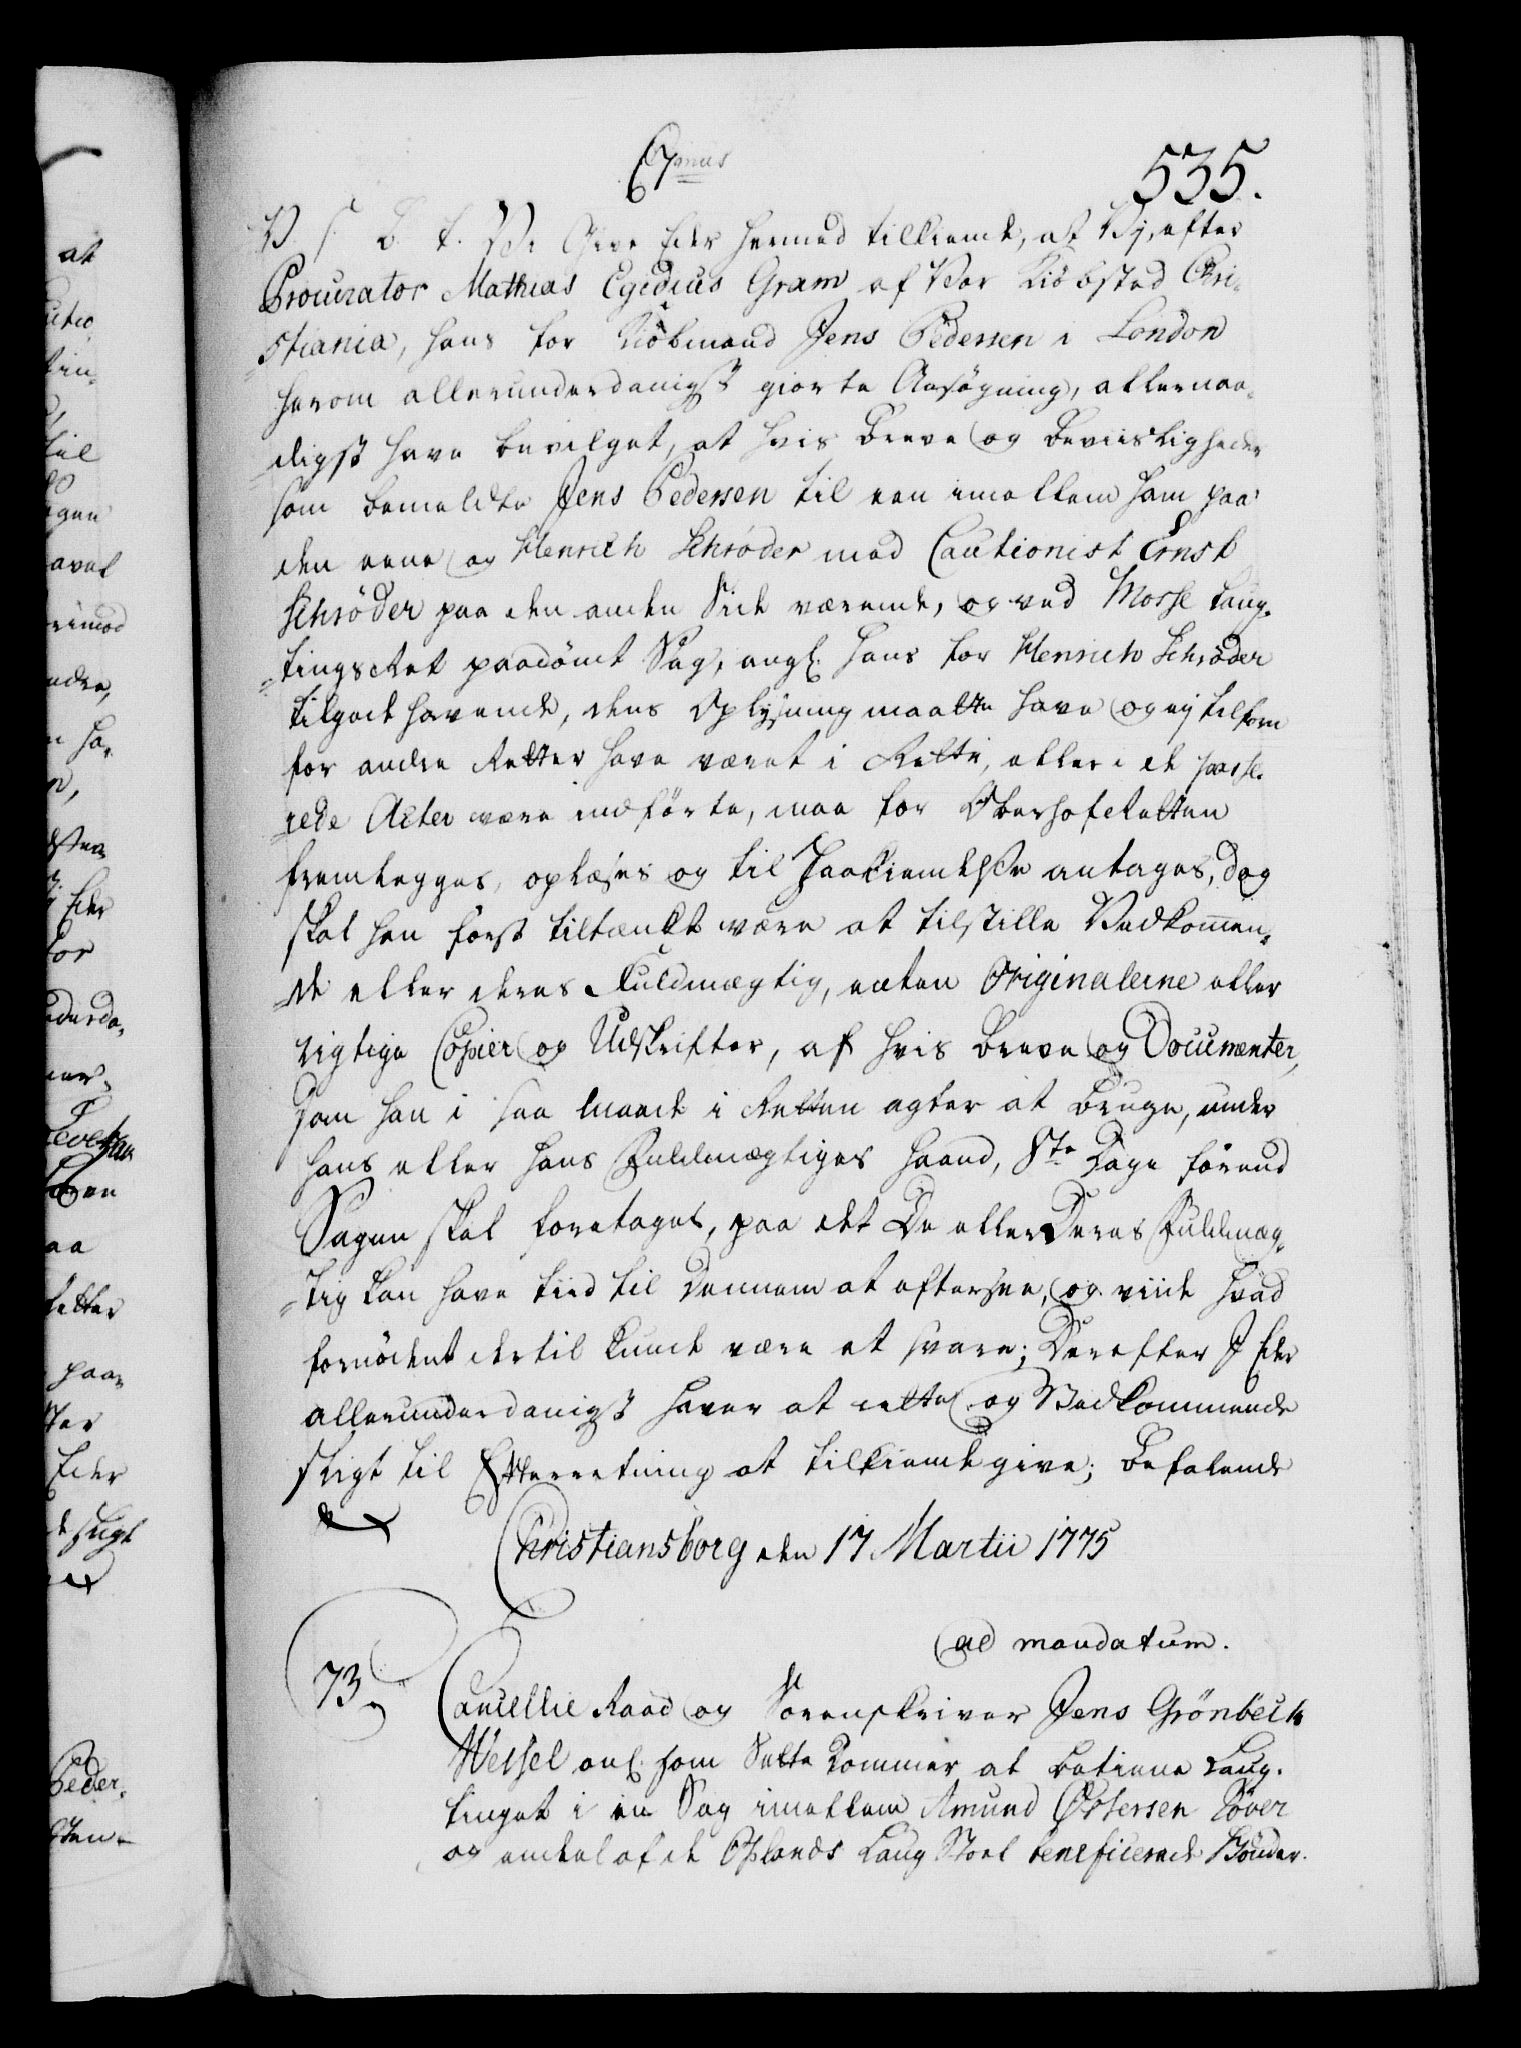 C7mus
535.
V. S. G. T. Vi Give Eder hermed tilkiende, at Vi, efter
Procurator Mathias Egidius Gram af Vor Kiöbsted Chri-
stiania, hans for Kiöbmand Jens Pedersen i London
herom allerunderdanigst giorte Ansögning, allernaa-
digst have bevilget, at hvis Breve og Beviisligheder
som bemeldte Jens Pedersen til een imellem ham paa
den eene og Henrich Schrøder med Cautionist Ernst
Schrøder paa den anden Side værende, og ved Mosse Laug-
tings Ret paadömt Sag, angl. hans for Henrich Schrøder
tilgodehavende, dens Oplysning maatte have og ej tilforn
for andre Retter have været i Rette, eller i de passe-
rede Acter være indførte, maa for OberhofsRetten
fremlegges, oplæses og til Paakiendelse antages, dog
skal han først tiltænkt være at tilstille Vedkommen-
de eller deres Fuldmægtig, enten Originalerne eller
rigtige Copier og Udskrifter, af hvis Breve og Documenter,
som han i saa maade i Retten agter at bruge, under
hans eller hans Fuldmægtiges Haand, 8te Dage førend
Sagen skal foretages, paa det De eller Deres Fuldmæg-
tig kan have tiid til dennem at eftersee, og viide hvad
fornödent dertil kunde være at svare; Derefter I Eder
allerunderdanigst haver at rette og Vedkommende
sligt til Efterretning at tilkiendegive; Befalende
Christiansborg den 17 Martii 1775
ad mandatum.
73
Cancellie Raad og Sorenskriver Jens Grönbeck
Wessel anl. som Sætte Dommer at betiene Laug-
tinget i en Sag imellem Amund Østersen Töver
og endeel af de Oplands Laug Stoel beneficerede Bönder.